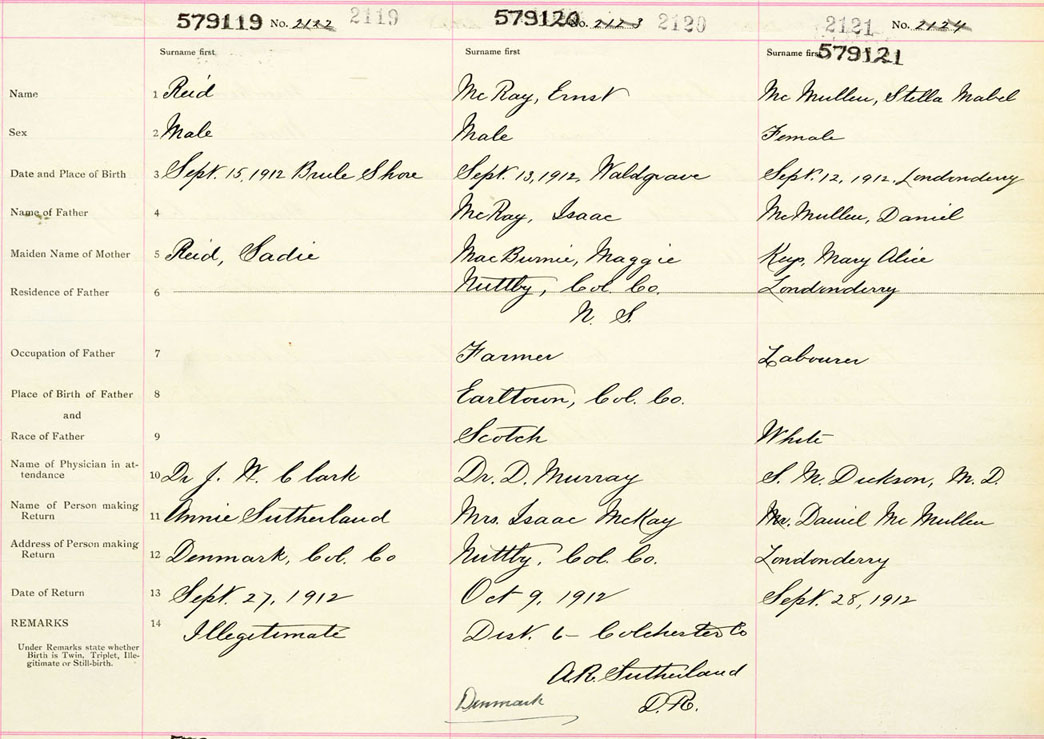 579119 No. 2122 2119 579120 No. 2123 2120 2121 No. 2124
Surname first Surname first Surname first 579121
Name 1 Reid McRay, Ernst McMullen, Stella Mabel
Sex 2 Male Male Female
Date and Place of Birth 3 Sept. 15, 1912 Brule Shore Sept. 13, 1912, Waldgrave Sept. 12, 1912, Londonderry
Name of Father 4 McRay, Isaac McMullen, Daniel
Maiden Name of Mother 5 Reid, Sadie MacBurnie, Maggie Mary Alice
Residence of Father 6 Nuttby, Col. Co. Londonderry
N. S.
Occupation of Father 7 Farmer Labourer
Place of Birth of Father 8 Earltown, Col. Co.
and
Race of Father 9 Scotch White
Name of Physician in at-
tendance 10 Dr J. W. Clark Dr. D. Murray S. M. Dickson, M. D.
Name of Person making
Return 11 Annie Sutherland Mrs. Isaac McKay Mr. Daniel McMullen
Address of Person making
Return 12 Denmark, Col. Co Nuttby, Col. Co. Londonderry
Date of Return 13 Sept. 27, 1912 Oct 9, 1912 Sept. 28, 1912
REMARKS 14 Illegitimate Dist. 6 - Colchester Co
Under Remarks state whether
Birth is Twin, Triplet, Ille-
gitimate or Still-birth.
A.R. Sutherland
Denmark D.R.